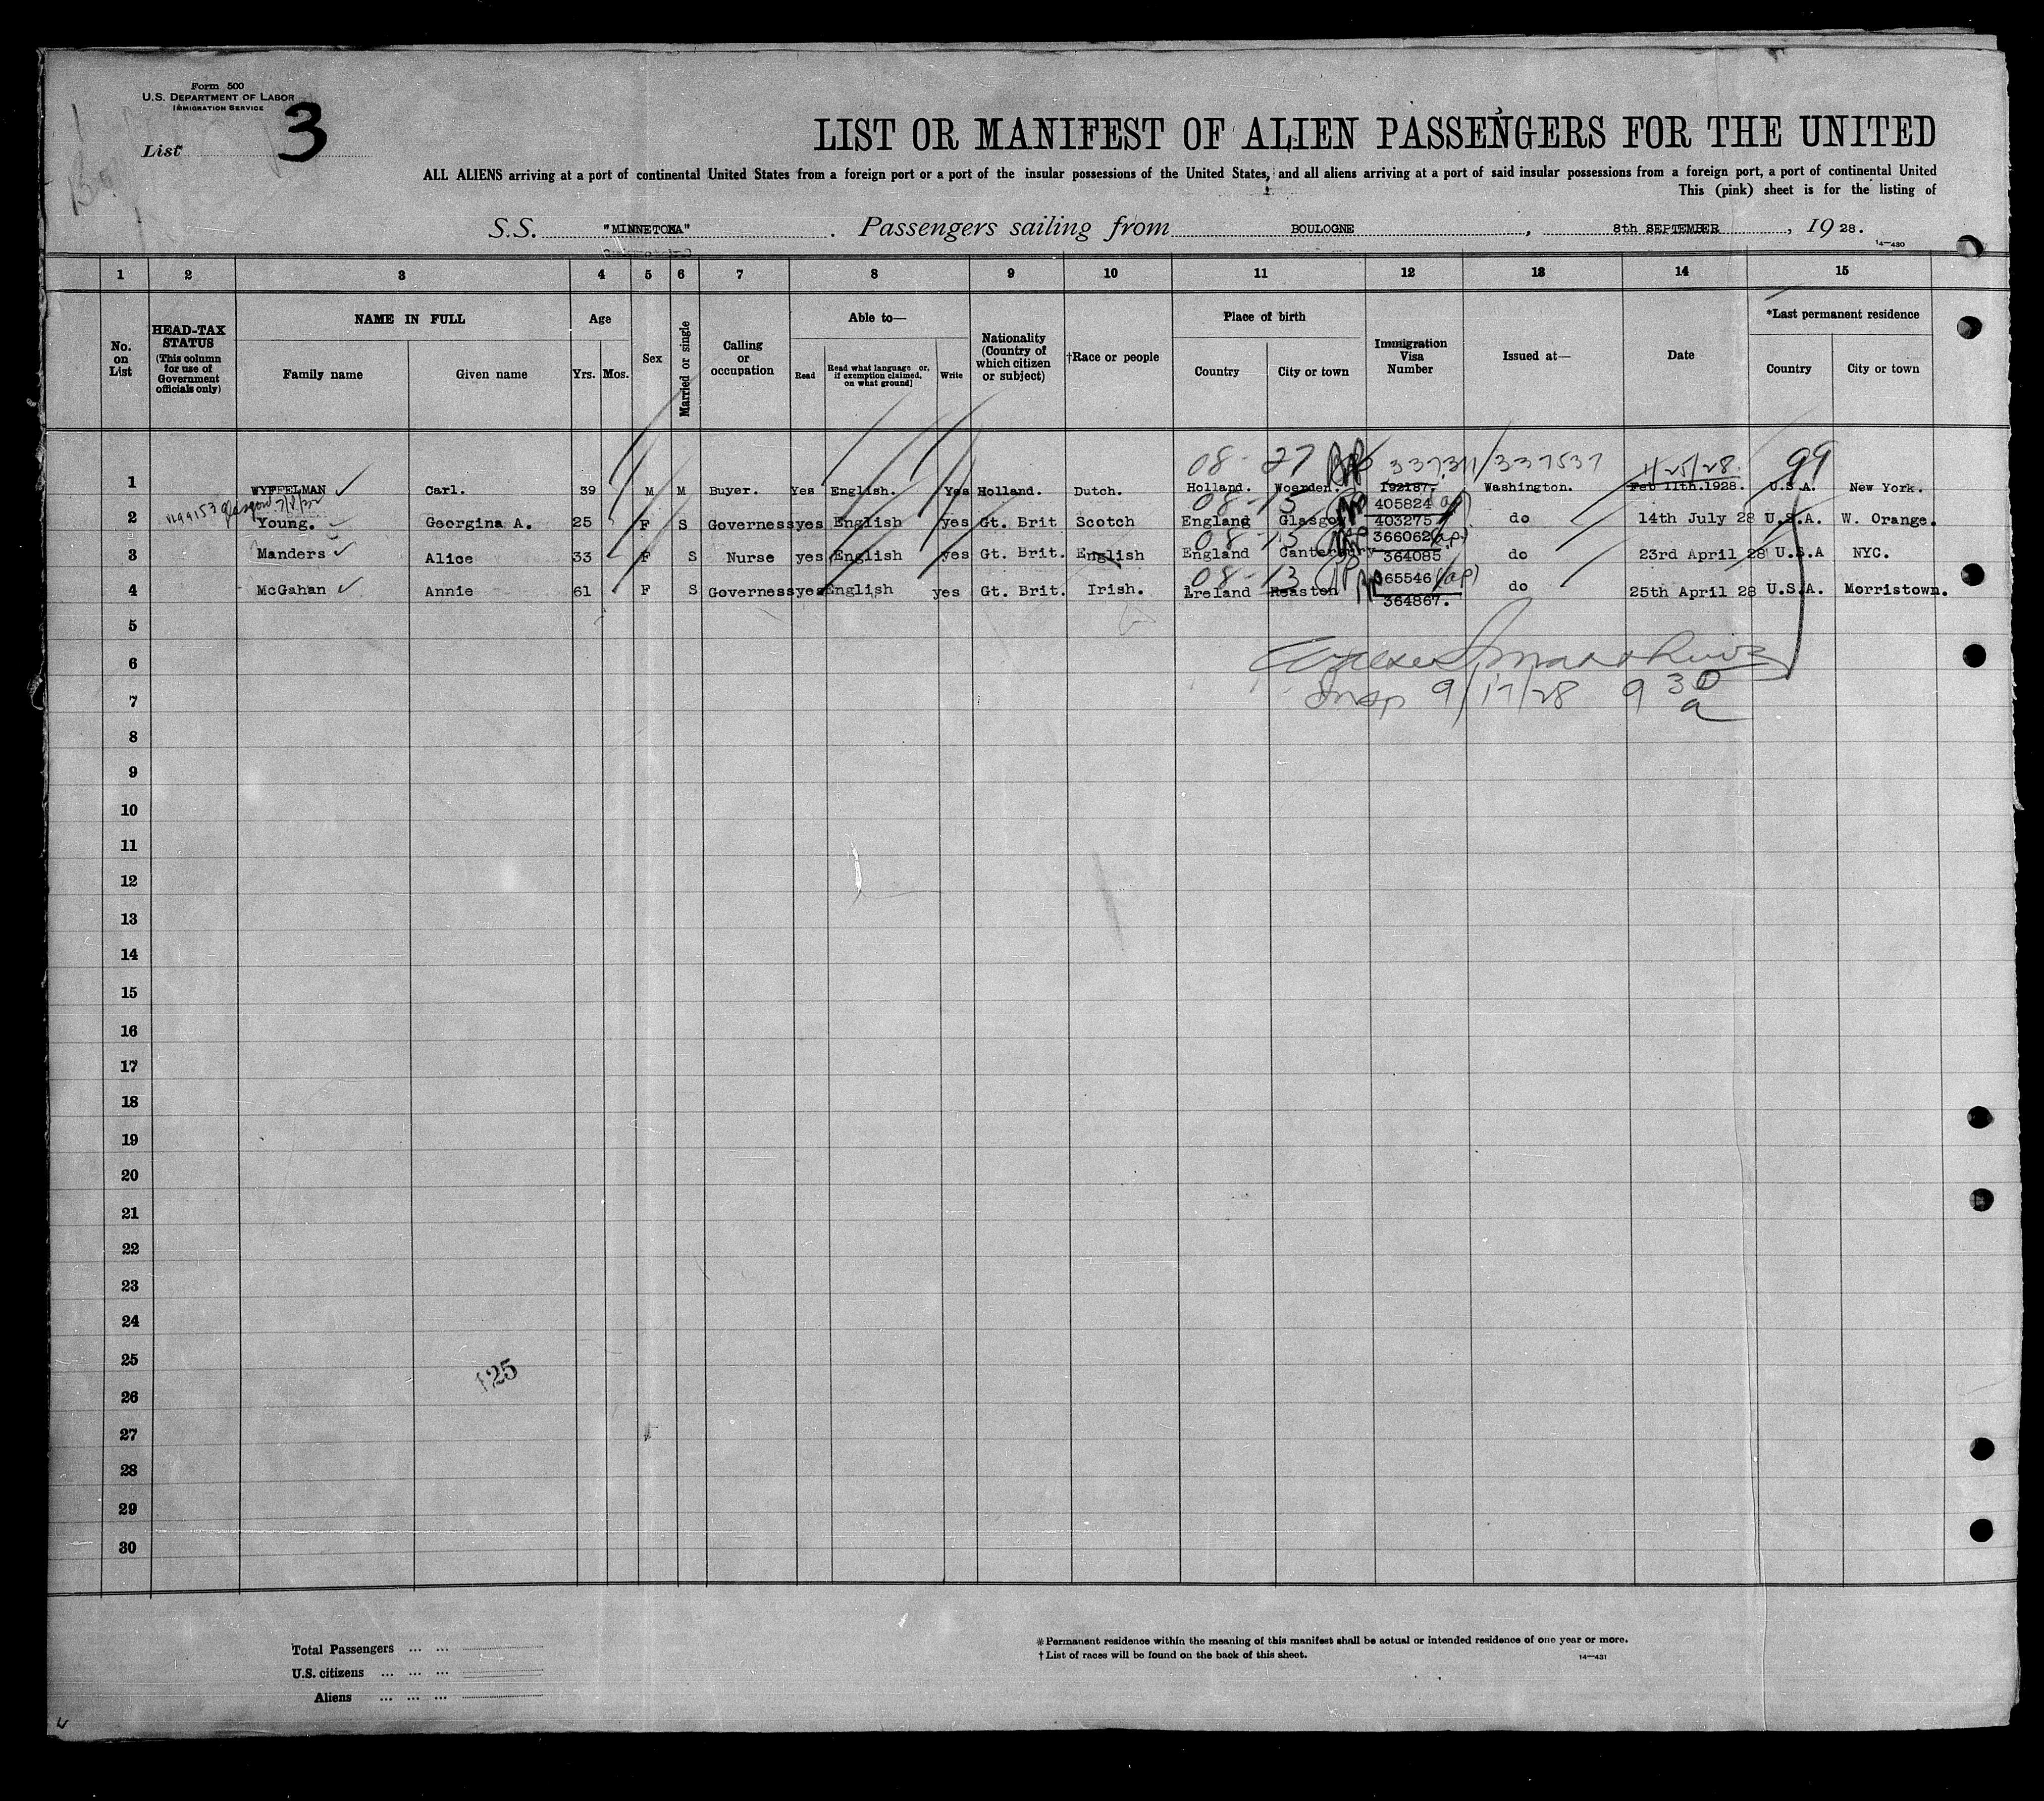 Form 500
U.S. DEPARTMENT OF LABOR
IMMIGRATION SERVICE
List 3
LIST OR MANIFEST OF ALIEN PASSENGERS FOR THE UNITED
ALL ALIENS arriving at a port of continental United States from a foreign port or a port of the insular possessions of the United States, and all aliens arriving at a port of said insular possessions from a foreign port, a port of continental United
This (pink) sheet is for the listing of
S.S. "MINNETONKA". Passengers sailing from BOULOGNE, 8th SEPTEMBER, 1928.
14—430
1 2 3 4 5 6 7 8 9 10 11 12 13 14 15
No. on List
HEAD-TAX STATUS (This column for use of Government officials only)
NAME IN FULL
Family name Given name
Age
Yrs. Mos.
Sex
Married or single
Calling or occupation
Able to—
Read
Read what language or, if exemption claimed, on what ground]
Write
Nationality (Country of which citizen or subject)
†Race or people
Place of birth
Country City or town
Immigration Visa Number
Issued at—
Date
*Last permanent residence
Country City or town
08-27 337311/337537 11/25/28. 99
1 WYFFELMAN Carl. 39 M M Buyer. Yes English. Yes Holland. Dutch. Holland. Woerden. 192187. Washington. Feb 11th.1928. U.S.A. New York.
Glasgow 7/8/32
08-15 405824 (ap)
2 Young. Georgina A. 25 F S Governess yes English yes Gt. Brit Scotch England Glasgow 403275 do 14th July 28 U.S.A. W. Orange.
08-13 366062 (ap)
3 Manders Alice 33 F S Nurse yes English yes Gt. Brit. English England Canterbury 364085 do 23rd April 28 U.S.A NYC.
08-13 365546 (ap)
4 McGahan Annie 61 F S Governess yes English yes Gt. Brit. Irish. Ireland Reaston 364867. do 25th April 28 U.S.A. Morristown.
5
6
7 Insp 9/17/28 9 30 a
8
9
10
11
12
13
14
15
16
17
18
19
20
21
22
23
24
25
125
26
27
28
29
30
Total Passengers ... ...
U.S. citizens ... ... ...
Aliens ... ... ...
*Permanent residence within the meaning of this manifest shall be actual or intended residence of one year or more.
†List of races will be found on the back of this sheet.
14—431